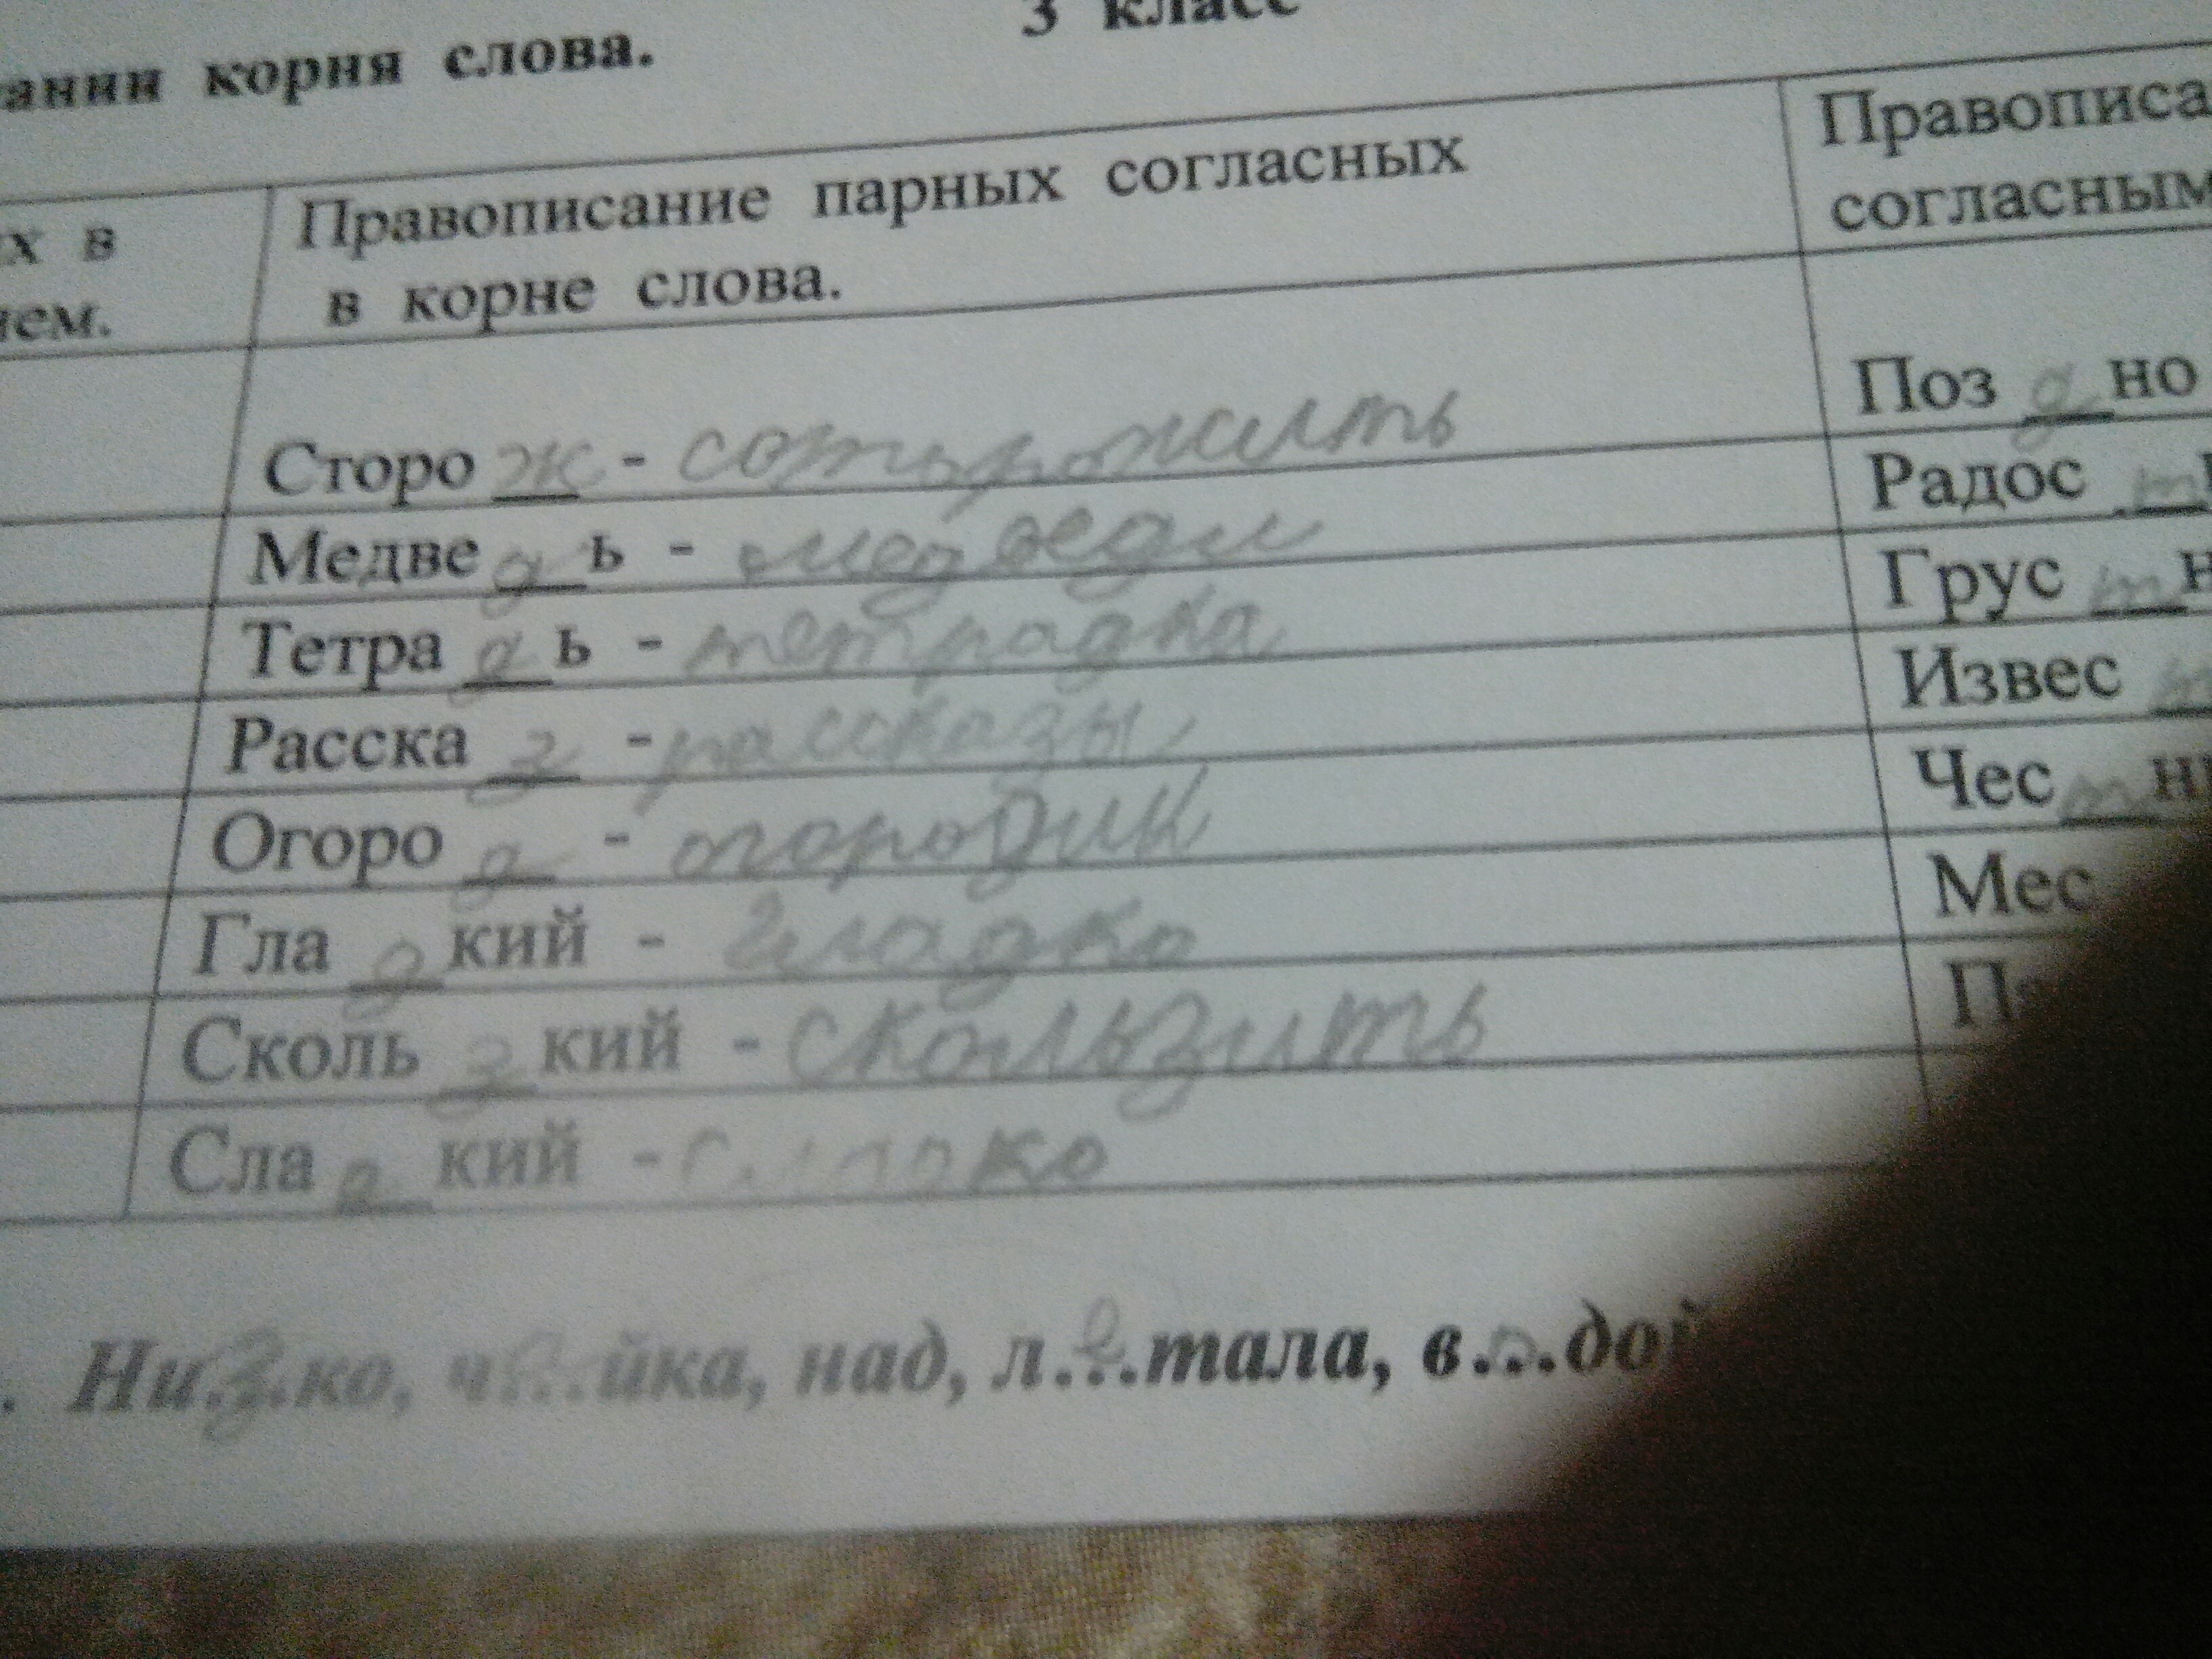 ании корня слова. 3 класс
х в Правописание парных согласных Правописа
ем. в корне слова. согласным
Сторо ж - Поз д но
Медве д ь - медведи Радос т
Тетра д ь - тетрадка Грус т н
Расска з - рассказы Извес т
Огоро д - огородик Чес т н
Гла д кий - гладко Мес
Сколь з кий - скользить П
Сла д кий -
. Ни.з.ко, ч...йка, над, л.е.тала, в.о.дой